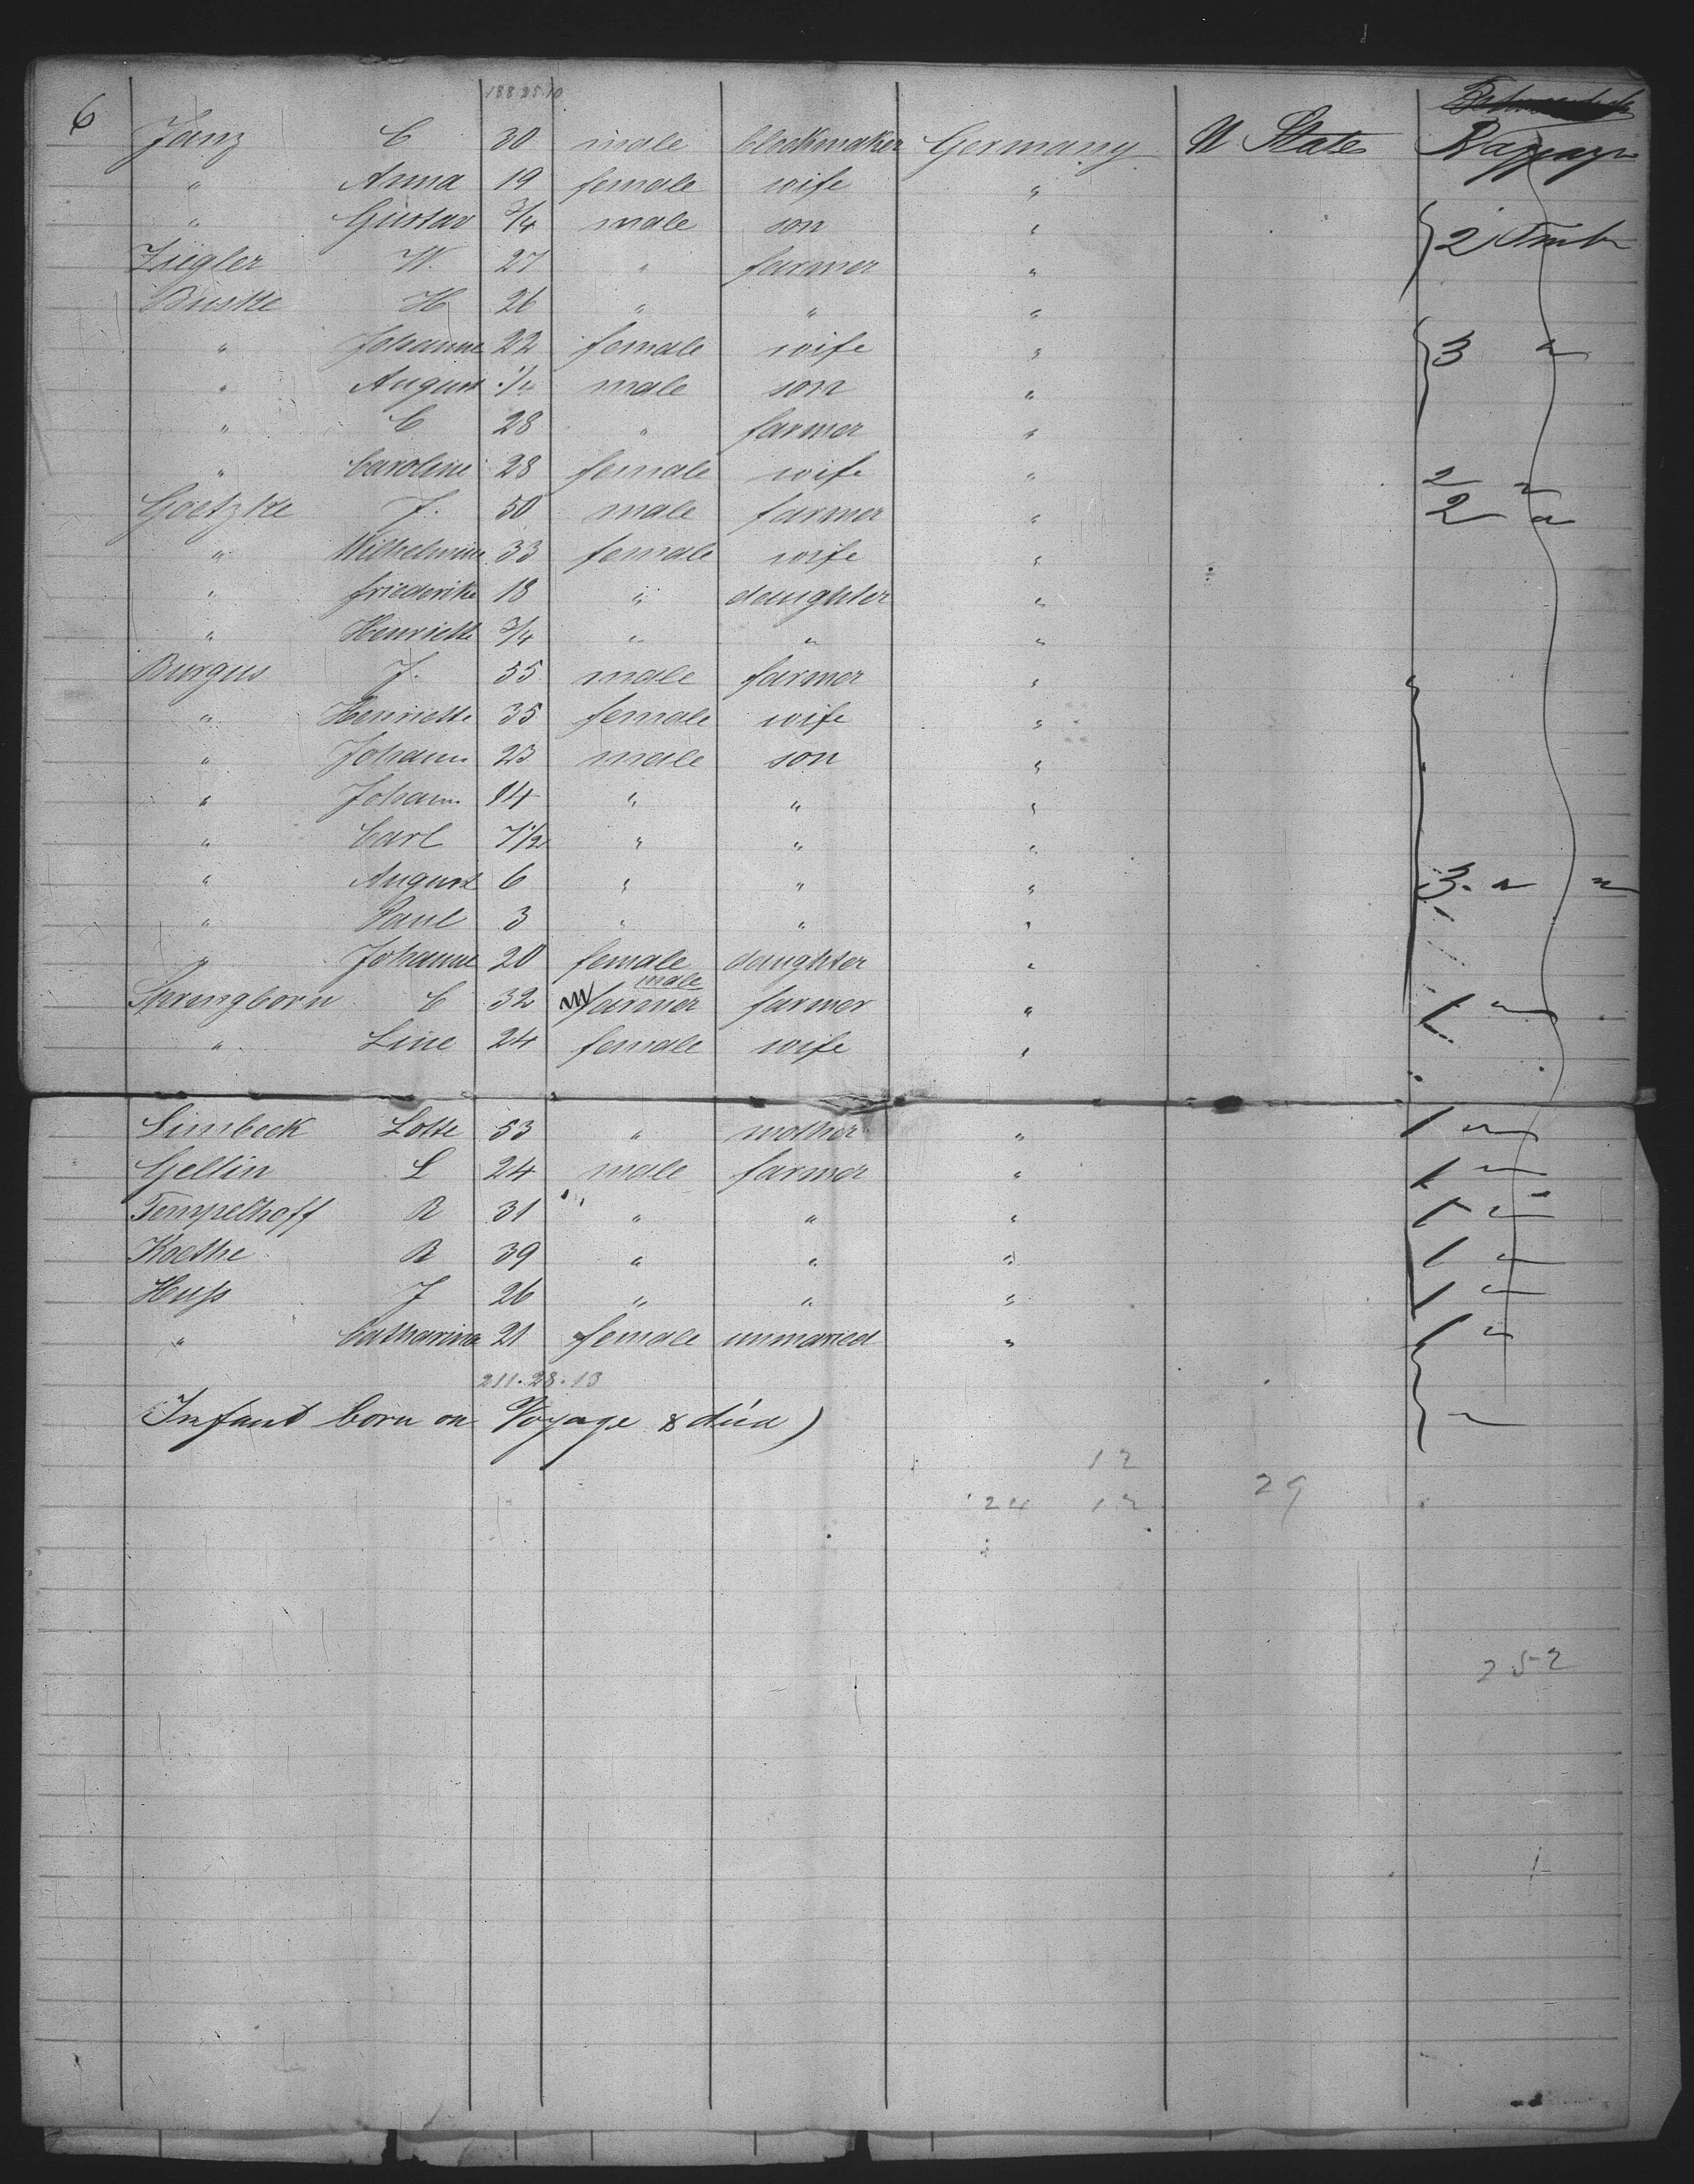 188.25.10
6 Janz C 30 male clockmaker Germany U States Baggage
" Anna 19 female wife "
" Gustav 3/4 male son "
Ziegler W. 27 " farmer " 2 Trunks
Buske H 26 " " "
" Johanne 22 female wife " 3 "
" August 1/4 male son "
" C 28 " farmer "
" Caroline 28 female wife " 2 "
Goetzke J. 50 male farmer " 2 "
" Wilhelmine 33 female wife "
" friederike 18 " daughter "
" Henriette 3/4 " " "
Burgus J. 55 male farmer "
" Henriette 35 female wife "
" Johann 23 male son "
" Johann 14 " " "
" Carl 7 1/2 " " "
" August 6 " " " 3 " "
" Paul 3 " " "
" Johanne 20 female daughter "
male
Springborn C 32 farmer farmer " 1 "
" Line 24 female wife "
Limbeck Lotte 53 " mother " 1 "
Gellin L 24 male farmer " 1 "
Tempelhoff R 31 " " " 1 "
Koethe R 39 " " " 1 "
Huss J 26 " " " 1 "
" Catharina 21 female unmaried " 1 "
211.28.13
Infant born on Voyage & died) "
12
24 12 29
252
1